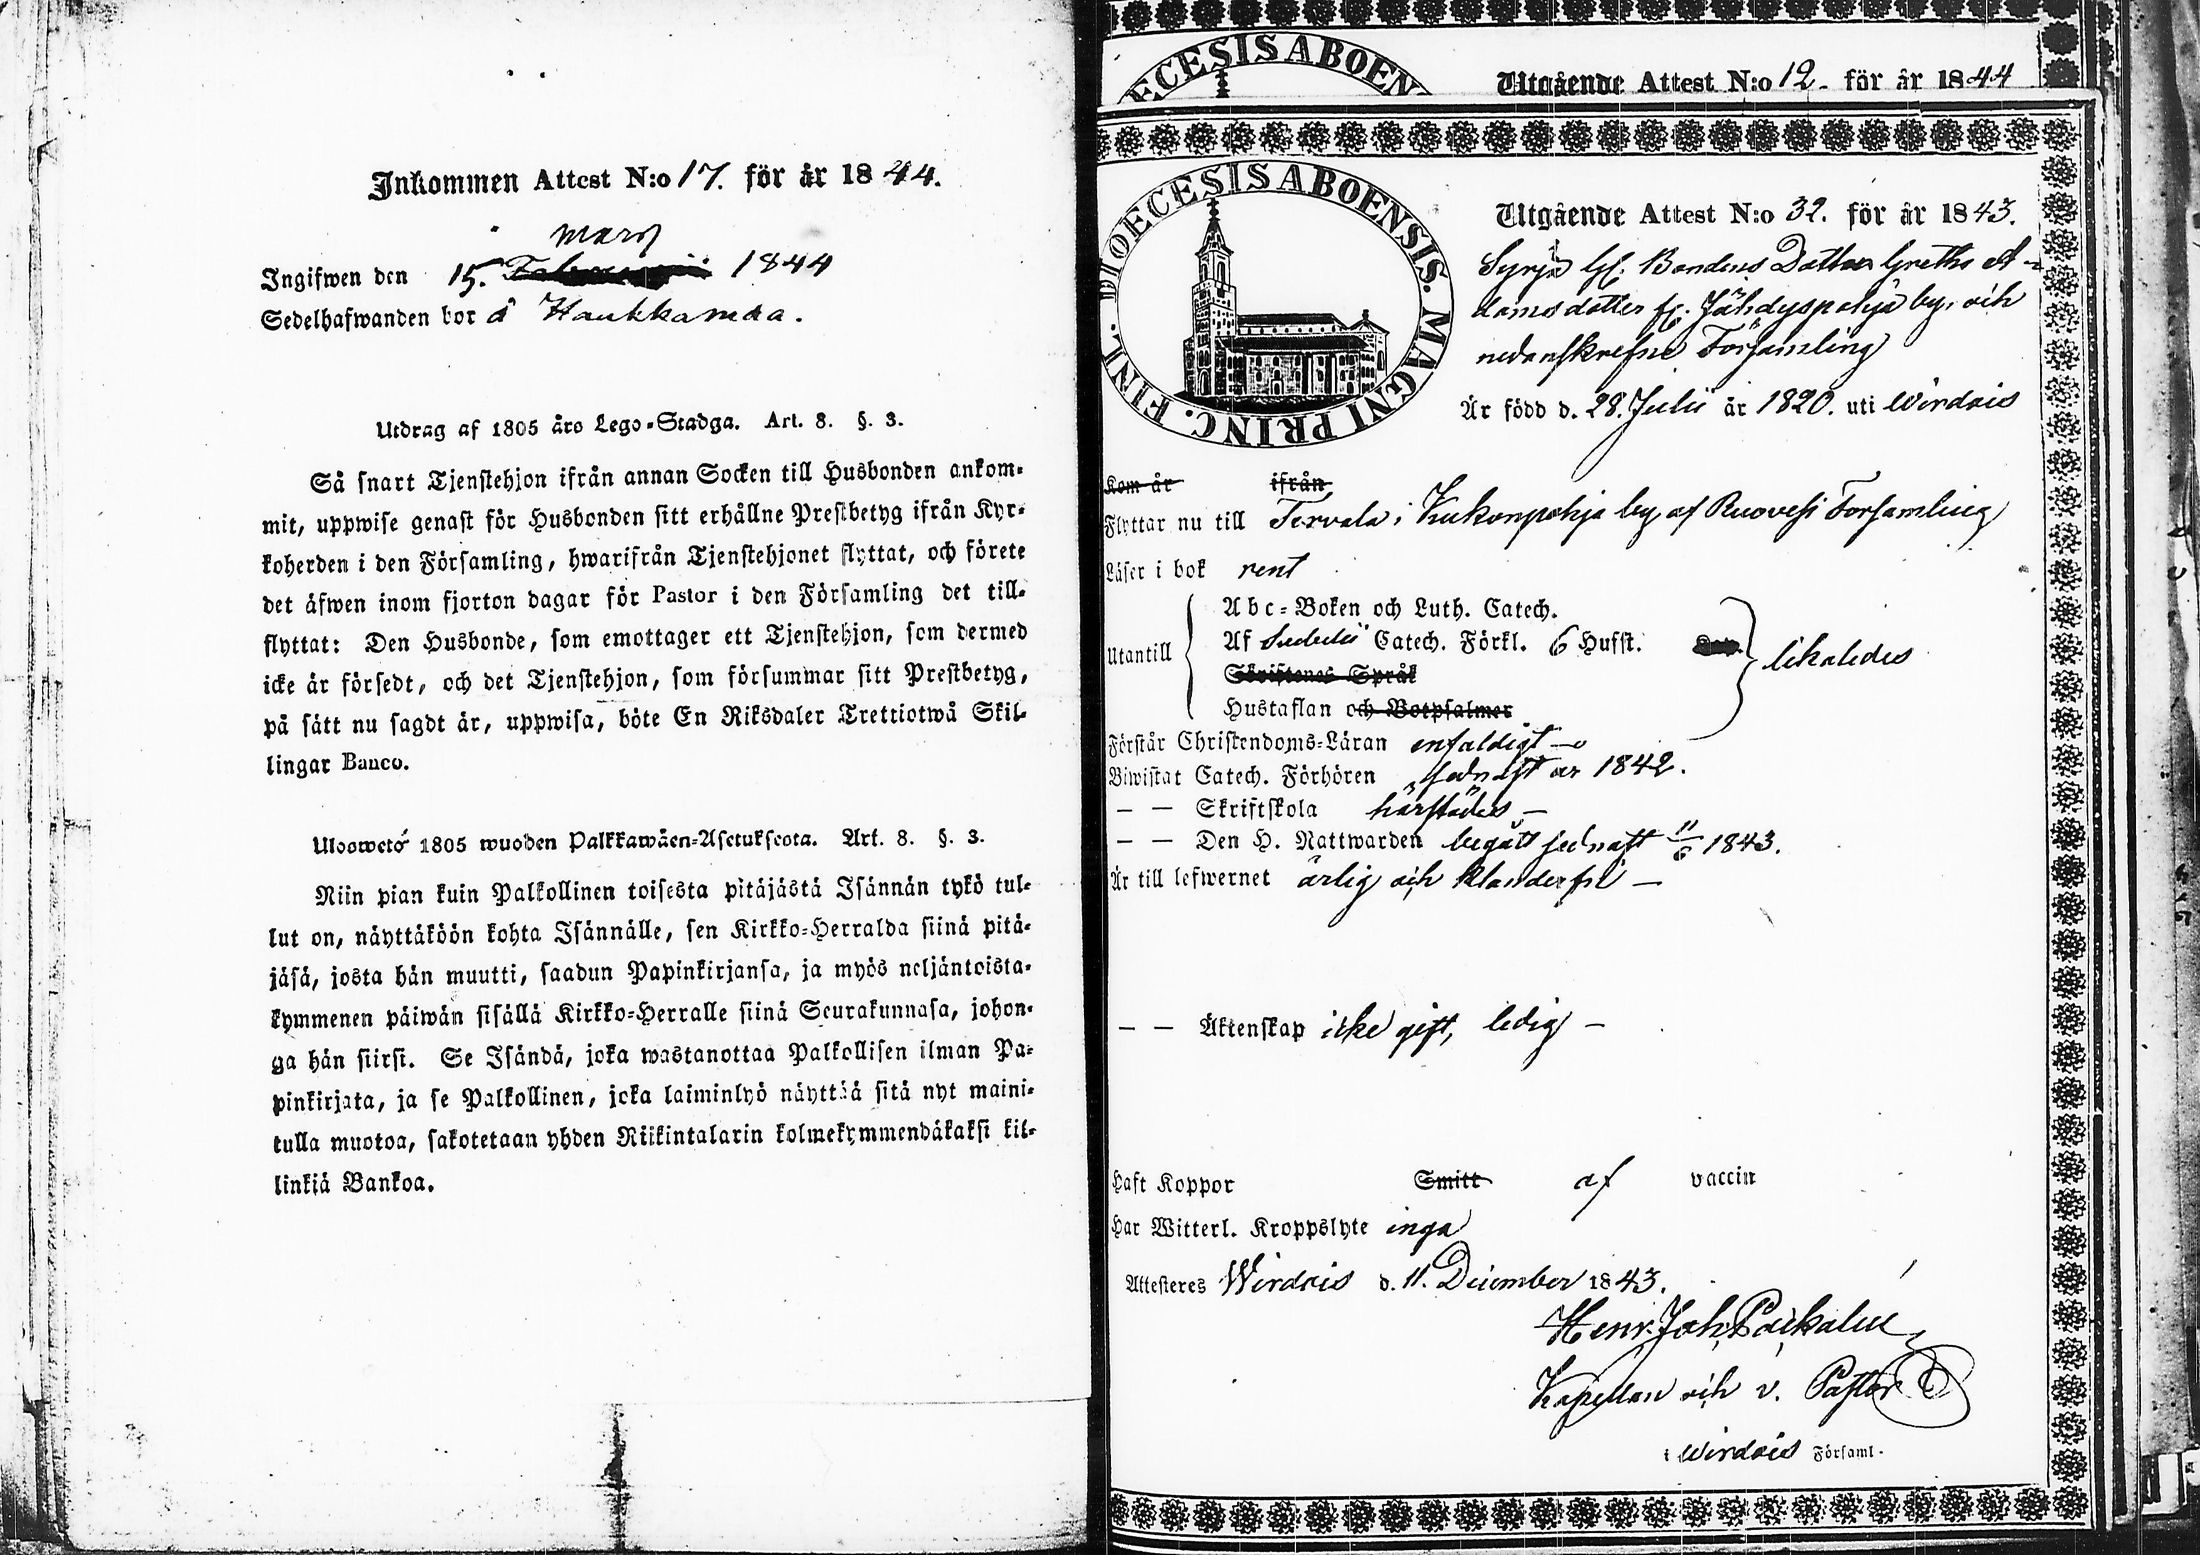 Inkommen Attest N:o 17. för år 1844.
mars
Ingifwen den 15. 1844
Sedelhafwanden bor å Haukkamaa.
Utdrag af 1805 års Lego-Stadga. Art. 8. §. 3.
Så snart Tjenstehjon ifrån annan Socken till Husbonden ankom-
mit, uppwise genast för Husbonden sitt erhållne Prestbetyg ifrån Kyr-
koherden i den Församling, hwarifrån Tjenstehjonet flyttat, och förete
det äfwen inom fjorton dagar för Pastor i den Församling det till-
flyttat: Den Husbonde, som emottager ett Tjenstehjon, som dermed
icke är försedt, och det Tjenstehjon, som försummar sitt Prestbetyg,
på sätt nu sagdt är, uppwisa, böte En Riksdaler Trettiotwå Skil-
lingar Banco.
Uloswetó 1805 wuoden Palkkawäen-Asetuksesta. Art. 8. §. 3.
Niin pian kuin Palkollinen toisesta pitäjästä Isännän tykö tul-
lut on, näyttäköön kohta Isännälle, sen Kirkko-Herralda siinä pitä-
jäsä, josta hän muutti, saadun Papinkirjansa, ja myös neljäntoista-
kymmenen päiwän sisällä Kirkko-Herralle siinä Seurakunnasa, johon-
ga hän siirsi. Se Isändä, joka wastanottaa Palkollisen ilman Pa-
pinkirjata, ja se Palkollinen, joka laiminlyö näyttää sitä nyt maini-
tulla muotoa, sakotetaan yhden Riikintalarin kolmekymmendäkaksi kil-
linkiä Bankoa.
ECESIS ABOEN
Utgående Attest N:o 12. för år 1844
DIOECESIS ABOENSIS. MAGNI PRINC. FINL.
Utgående Attest N:o 32. för år 1843.
Bondens Dotter Gretha A-
damsdotter fr. Jähdyspohja by, och
nedanskrefne Församling
Är född d. 28. Julii år 1820. uti Wirdois
Kom år ifrån
Flyttar nu till Tervala i Kukonpohja by af Ruovesi Församling
Läser i bok rent
Abc-Boken och Luth. Catech.
Utantill Af Catech. Förkl. 6 Husst. likaledes
Skriftenes Språk
Hustaflan och Botpsalmer
Förstår Christendoms-Läran enfaldigt
Biwistat Catech. Förhören sednast år 1842.
— — Skriftskola härstädes —
— — Den H. Nattwarden begått sednast 11/6 1843.
Är till lefwernet ärlig och klanderfri —
— — Äktenskap icke gift, ledig —
Haft Koppor Smitt af vaccin
Har Witterl. Kroppslyte inga
Attesteres Wirdois d. 11. December 1843.
Henr. Joh.
Kapellan och v. Pastor
i Wirdois Församl.